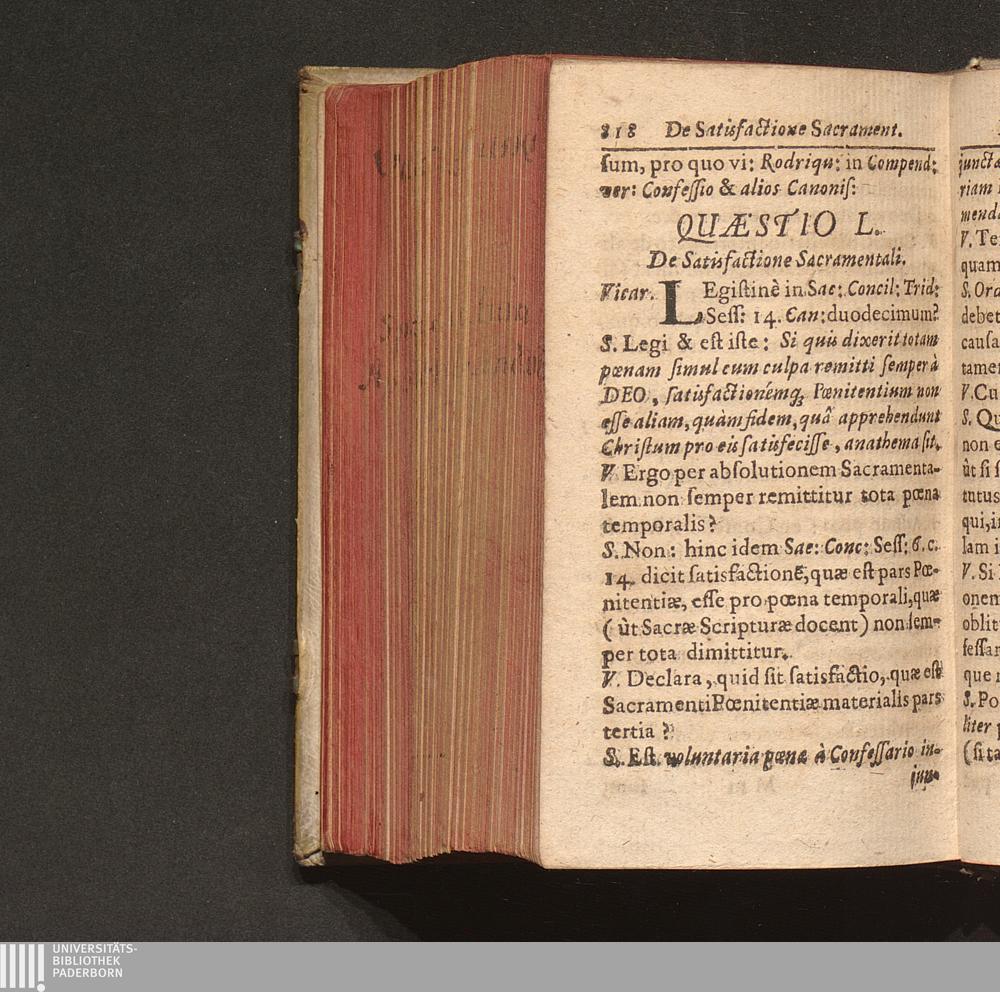 818 De Satisfactione Sacrament.
sum, pro quo vi: Rodriqu: in Compend:
ver: Confessio & alios Canonis:
QUÆSTIO L.
De Satisfactione Sacramentali.
Vicar. LEgistinè in Sac: Concil: Trid:
Sess: 14. Can: duodecimum?
S. Legi & est iste: Si quis dixerit totam
pœnam simul cum culpa remitti semper à
DEO, satisfactionémq; Pœnitentium non
esse aliam, quàm fidem, quâ apprehendunt
Christum pro eis satisfecisse, anathema sit.
V. Ergo per absolutionem Sacramenta-
lem non semper remittitur tota pœna
temporalis?
S. Non: hinc idem Sae: Conc: Sess: 6. c.
14. dicit satisfactionē, quæ est pars Pœ-
nitentiæ, esse pro pœna temporali, quæ
( ùt Sacræ Scripturæ docent) non sem-
per tota dimittitur.
V. Declara, quid sit satisfactio, quæ est
Sacramenti Pœnitentiæ materialis pars
tertia?
S. Est voluntaria pœna à Confessario in-
jun-
junctæ
riam
mendæ
V. Te
quam
S. Ord
debet
causa
tamen
V. Cu
S. Qu
non
ùt si
tutus
qui, i
lam i
V. Si
onem
oblit
fessar
que
S. Po
liter
( si ta
UNIVERSITÄTS-
BIBLIOTHEK
PADERBORN